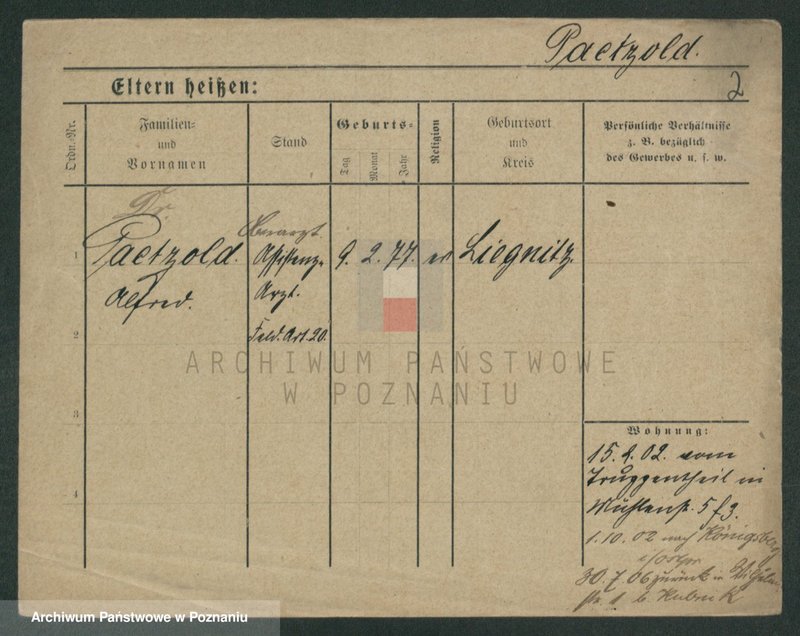 Paetzold.
2
Eltern heißen:
Ordn.-Nr.
Familien=
und
Vornamen
Stand
Geburts=
Tag
Monat
Jahr
Religion
Geburtsort
und
Kreis
Persönliche Verhältnisse
z. B. bezüglich
des Gewerbes u. s. w.
Dr.
Oberarzt
1
Paetzold.
Assistenz-
9. 2. 77. ev Liegnitz.
Alfred.
Arzt.
2
Feld. Art. 20.
ARCHIWUM PAŃSTWOWE
W POZNANIU
3
Wohnung:
4
15.4.02. vom
Truppentheil in
Mühlenstr. 5
1.10.02 nach Königsberg
i/Ostpr
30.7.06 zurück in
Archiwum Państwowe w Poznaniu